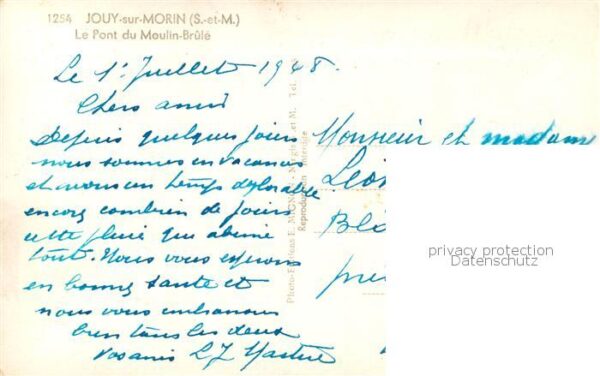 1254 JOUY-sur-MORIN (S.-et-M.)
Le Pont du Moulin-Brûlé
Le 1er Juillet 1948.
Chers amis
Depuis quelques jours
nous sommes en vacances
et avons un temps deplorable
encore combien de jours
cette pluie qui abime
tout. Nous vous esperons
en bonne sante et
nous vous embrassons
bien tous les deux
Vos amis
Monsieur et madam
Photo-Editions E. MIGNON
Reproduction interdite
privacy protection
Datenschutz